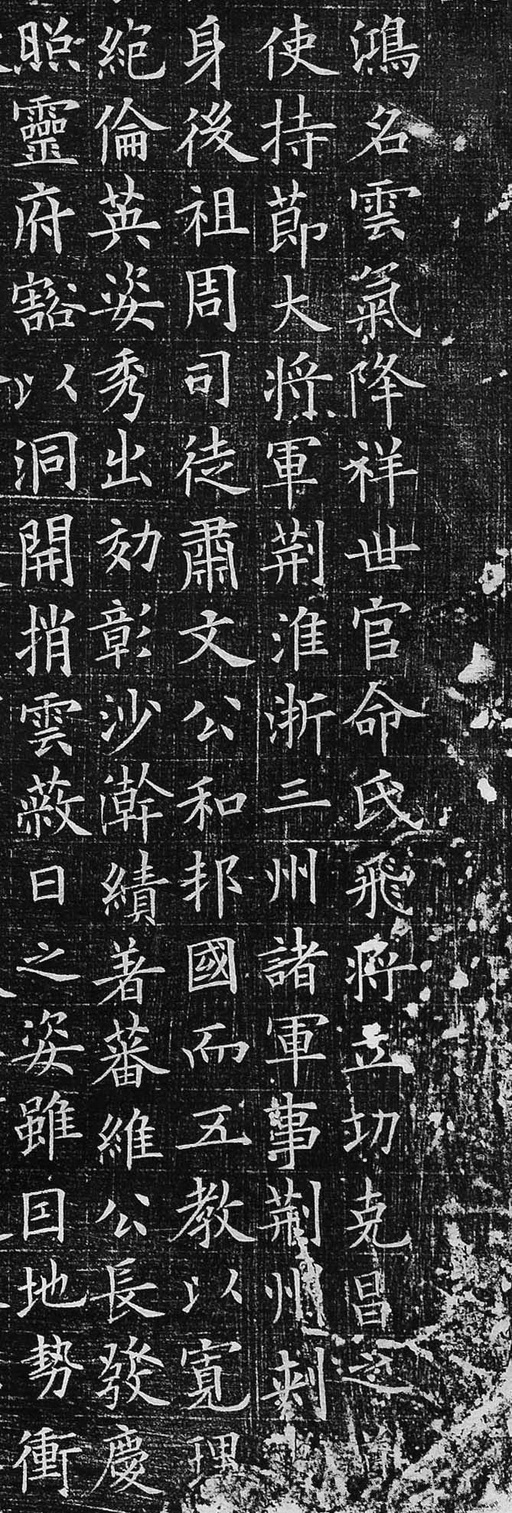 鴻名雲氣降祥世官命氏飛將立功克昌之
使持莭大將軍荆淮淅三州諸軍事荆州刺
身後祖周司徒肅文公和邦國而五教以寛理
絶倫英姿秀出効彰沙澣績著蕃維公長發慶
照靈府豁以洞開捎雲蔽日之姿雖因地勢衝